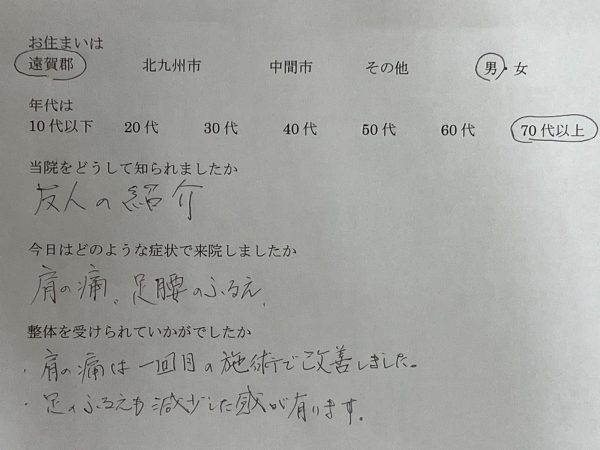 お住まいは
遠賀郡 北九州市 中間市 その他 男・女
年代は
10代以下 20代 30代 40代 50代 60代 70代以上
当院をどうして知られましたか
友人の紹介
今日はどのような症状で来院しましたか
肩の痛、足腰のふるえ、
整体を受けられていかがでしたか
・肩の痛は一回目の施術で改善しました。
・足のふるえも減少した感が有ります。